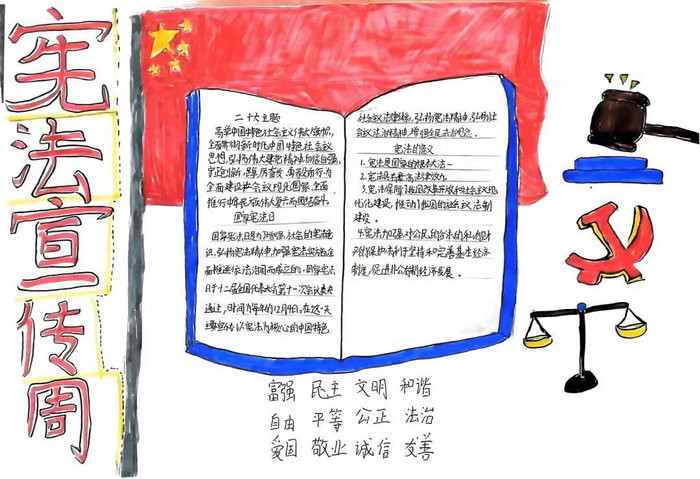 宪法宣传周
二十大主题
高举中国特色社会主义伟大旗帜,
全面贯彻新时代中国特色社会主义
思想,弘扬伟大建党精神,自信自强,
守正创新,踔厉奋发,勇毅前行为
全面建设社会主义现代化国家、全面
推行中华民族伟大复兴而团结奋斗。
国家宪法日
国家宪法日是为了增强全社会的宪法意
识,弘扬宪法精神,加强宪法实施,全
面推进依法治国而设立的。国家宪法
日于十二届全国代表大会第十一次会议表决
通过,时间为每年的12月4日,在这一天
以宪法为核心的中国特色
社会主义法律体系,弘扬宪法精神,弘扬社
会主义法治精神,增强全民法治观念。
宪法的意义
1.宪法是国家的根本大法
2.宪法具有最高法律效力
3.宪法保障了我国改革开放和社会主义现
代化建设,推动了我国的社会主义法制
建设。
4.宪法加强对公民的合法的私有财
产的保护有利于坚持和完善基本经济
制度,促进非公有制经济发展。
富强 民主 文明 和谐
自由 平等 公正 法治
爱国 敬业 诚信 友善